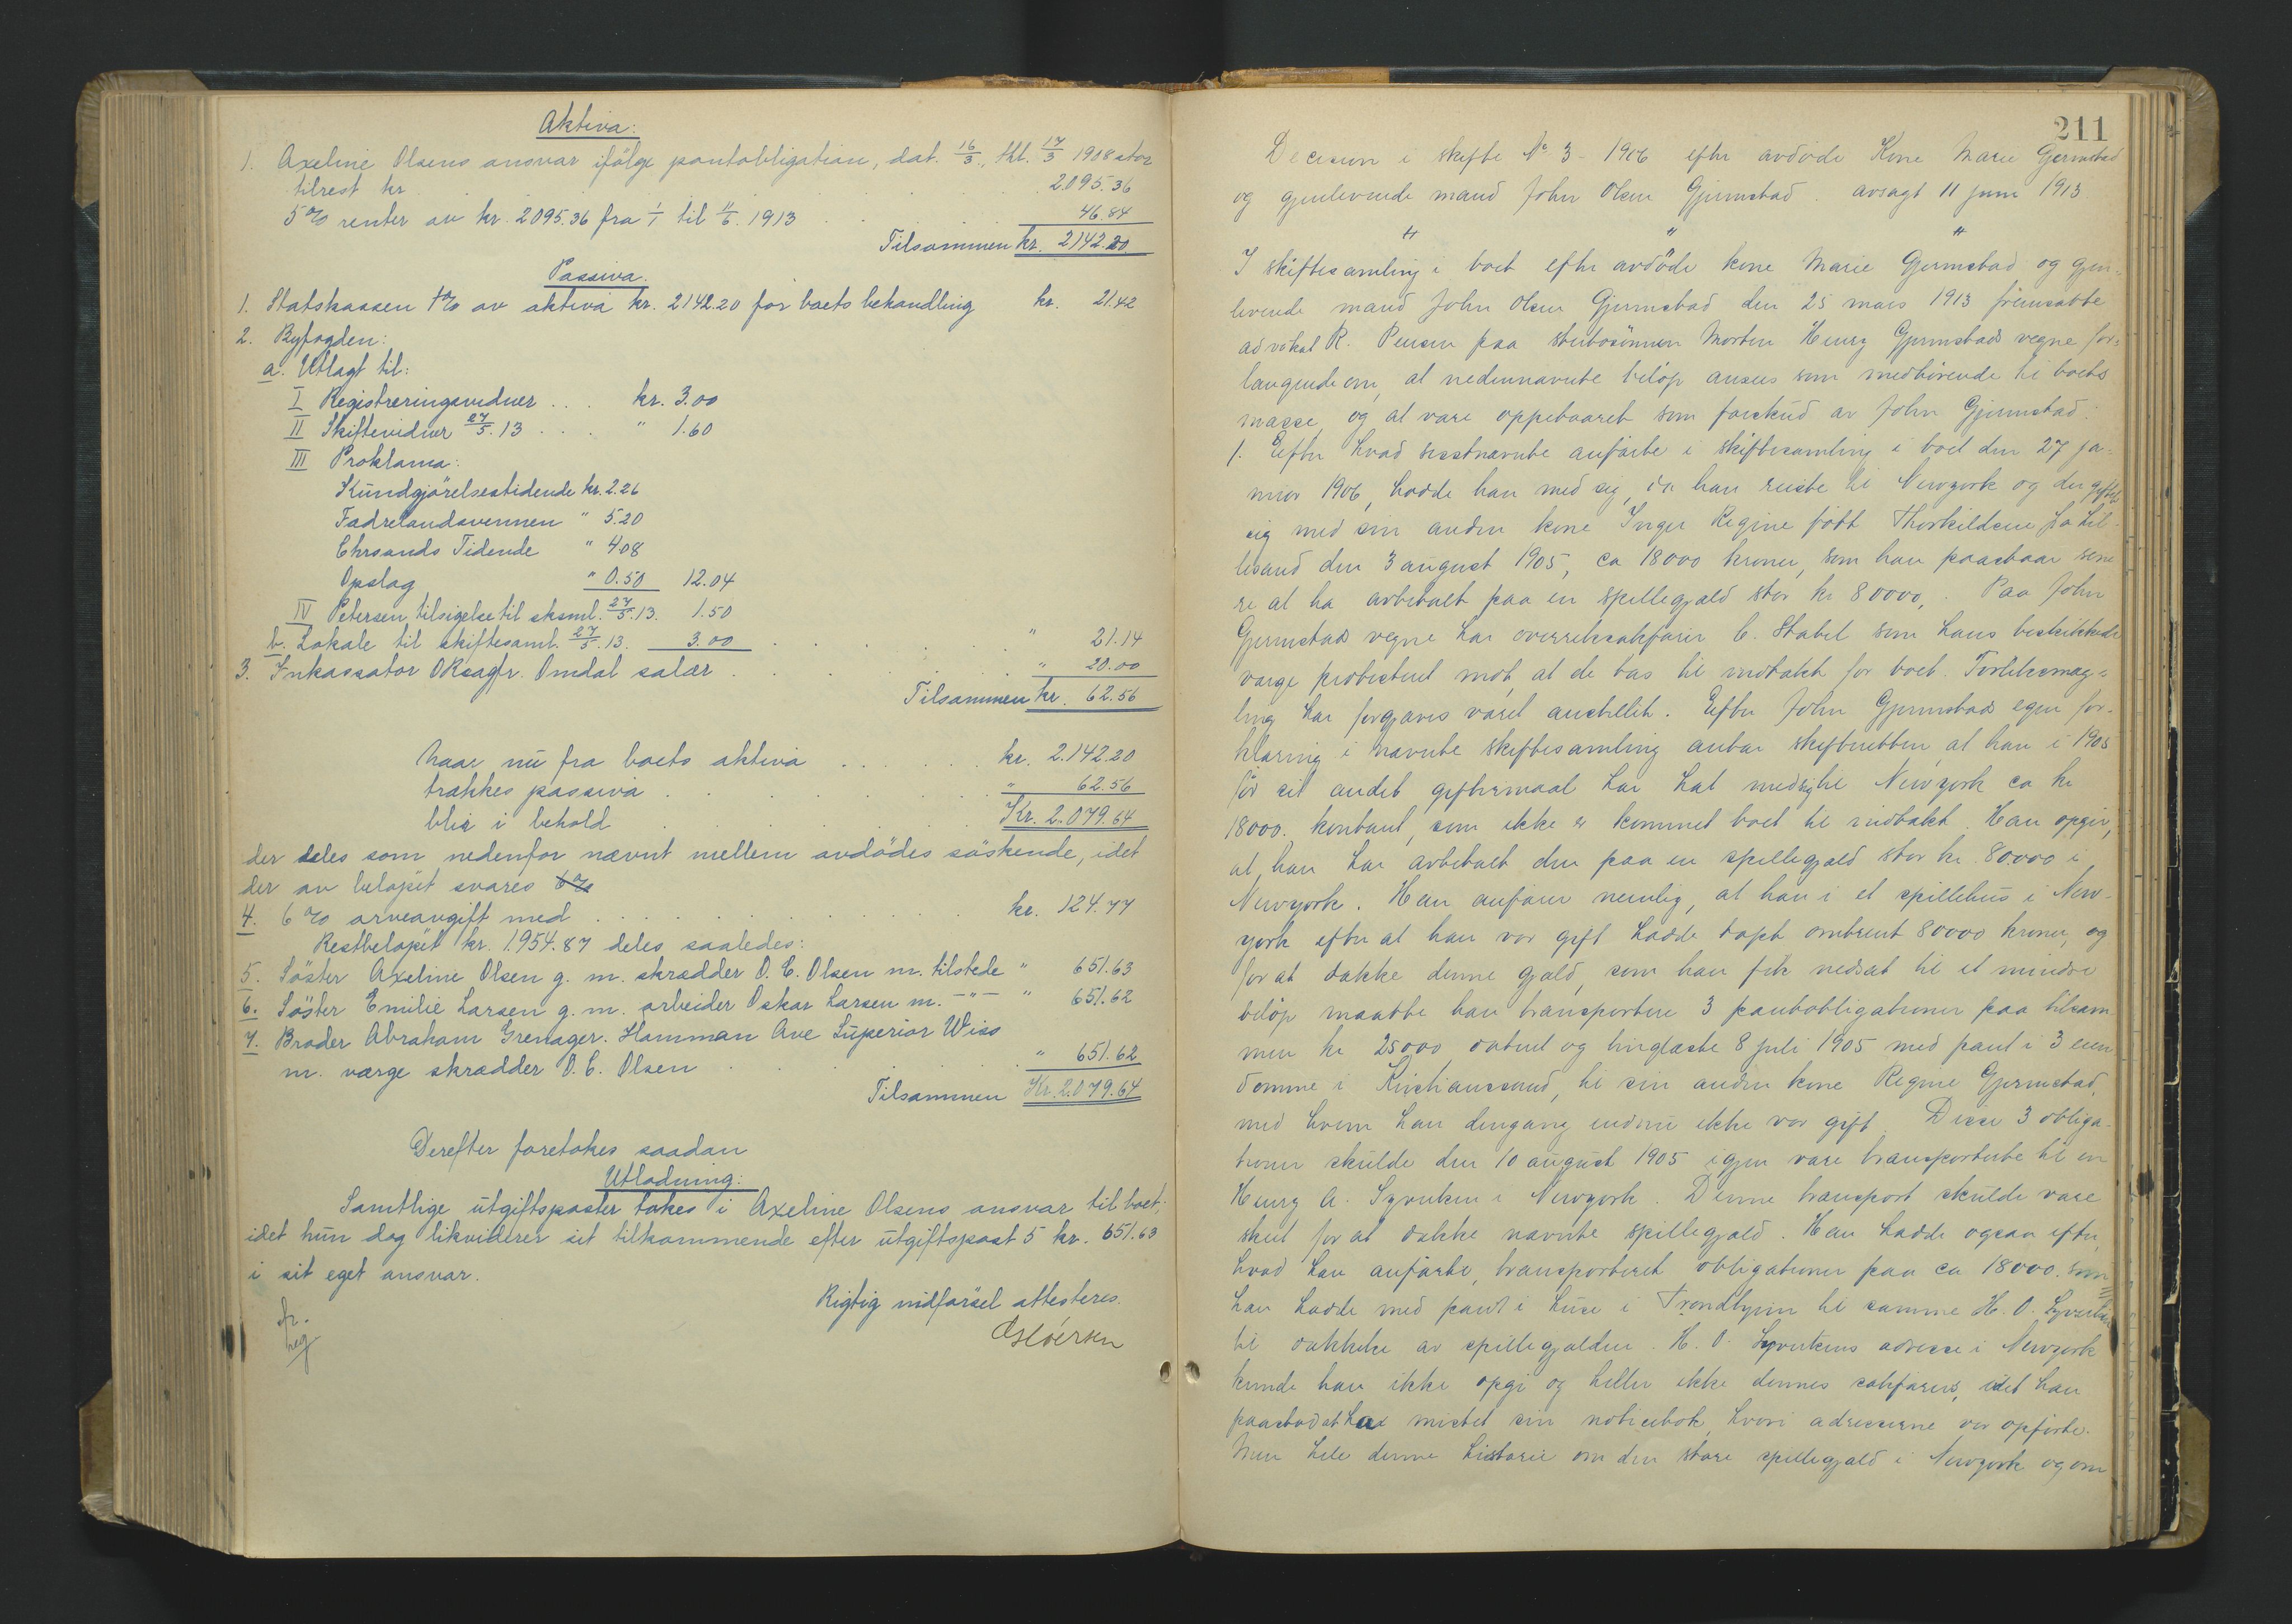 Aktiva:
1. Axeline Olsens ansvar ifölge pantobligation, dat. 16/3, thl. 17/3 1908 stor
tilrest kr. 2095.36
5% renter av kr. 2095.36 fra 1/1 til 11/6. 1913 46.84
Tilsammen kr. 2142.20
Passiva.
1. Statskassen 1% av aktiva kr. 2142.20 for boets behandling kr. 21.42
2. Byfogden:
a. Utlagt til:
I Registreringsvidner . . . kr. 3.00
II Skiftevidner 27/5.13 . . . " 1.60
III Proklama:
Kundgjörelsestidende kr. 2.26
Fædrelandsvennen " 5.20
Chrsands Tidende " 4.08
Opslag " 0.50 12.04
IV Petersen, tilsigelse til sksml. 27/5.13. 1.50
b. Lokale til skiftesaml. 27/5.13. 3.00 " 21.14
3. Inkassator O.R.sagfr. Omdal salær " 20.00
Tilsammen kr. 62.56
Naar nu fra boets aktiva kr. 2.142.20
trækkes passiva " 62.56
blir i behold Kr. 2.079.64
der deles som nedenfor nævnt mellem avdödes söskende, idet
der av beløpet svares 6%
4. 6% arveavgift med kr. 124.77
Restbeløpet kr. 1.954.87 deles saaledes:
5. Söster Axeline Olsen g. m. skrædder O. C. Olsen m. tilstede " 651.63
6. Söster Emilie Larsen g. m. arbeider Oskar Larsen m. -"- " 651.62
7. Broder Abraham Grenager. Hamman Ave Superior Wiss
m. værge skrædder O. C. Olsen " 651.62
Tilsammen Kr. 2.079.64
Derefter foretokes saadan
Utlodning:
Samtlige utgiftsposter tokes i Axeline Olsens ansvar til boet,
idet hun dog likviderer sit tilkommende efter utgiftspost 5 kr. 651.63
i sit eget ansvar.
Rigtig indførsel attesteres.
211
Decision i skifte No 3 - 1906 efter avdøde Kone Marie Gjermstad
og gjenlevende mand John Olsen Gjermstad. avsagt 11 juni 1913.
" " "
I skiftesamling i boet efter avdöde kone Marie Gjermstad og gjen-
levende mand John Olsen Gjermstad den 25 mars 1913 fremsatte
advokat R. Pensen paa stervbosönnen Morten Henry Gjermstads vegne for-
langende om, at nedennævnte beløp ansees som medhörende til boets
masse, og at være oppebaaret som forskud av John Gjermstad:
1. Efter hvad sidstnævnte anførte i skiftesamling i boet den 27 ja-
nuar 1906, hadde han med sig, da han reiste til Newyork og der giftet
sig med sin anden kone Inger Regine født Thorkildsen fra Lil-
lesand den 3 august 1905, ca 18000 kroner, som han paastaar sene-
re at ha avbetalt paa en spillegjæld stor kr 80000,. Paa John
Gjermstads vegne har overretssakfører C. Stabel som hans beskikkede
værge protesteret mot, at de tas til indtækt for boet. Forliksmæg-
ling har forgjæves været anstillet. Efter John Gjermstads egen for-
klaring i nævnte skiftesamling antar skifteretten, at han i 1905
før sit andet giftermaal har hat med sig til Newyork ca kr
18000. kontant, som ikke er kommet boet til indtækt. Han opgir,
at han har avbetalt den paa en spillegjæld stor kr. 80000 i
Newyork. Han anfører nemlig, at han i et spillehus i New-
york efter at han var gift hadde tapt omtrent 80000 kroner, og
for at dække denne gjæld, som han fik nedsat til et mindre
beløp maatte han transportere 3 pantobligationer paa tilsam-
men kr 25000, datert og tinglæste 8 juli 1905 med pant i 3 eien-
domme i Kristianssand, til sin anden kone Regine Gjermstad,
med hvem han dengang endnu ikke var gift. Disse 3 obliga-
tioner skulde den 10 august 1905 igjen være transporterte til en
Henry A. i Newyork. Denne transport skulde være
sket for at dække nævnte spillegjæld. Han hadde ogsaa efter,
hvad han anførte, transporteret obligationer paa ca 18000. som
han hadde med pant i huse i Trondhjem til samme H. O.
til dækkelse av spillegjælden. H. O. adresse i Newyork
kunde han ikke opgi og heller ikke dennes sakførers, idet han
paastod at ha mistet sin noticebok, hvori adresserne var opførte.
Men hele denne historie om den store spillegjæld i Newyork og om